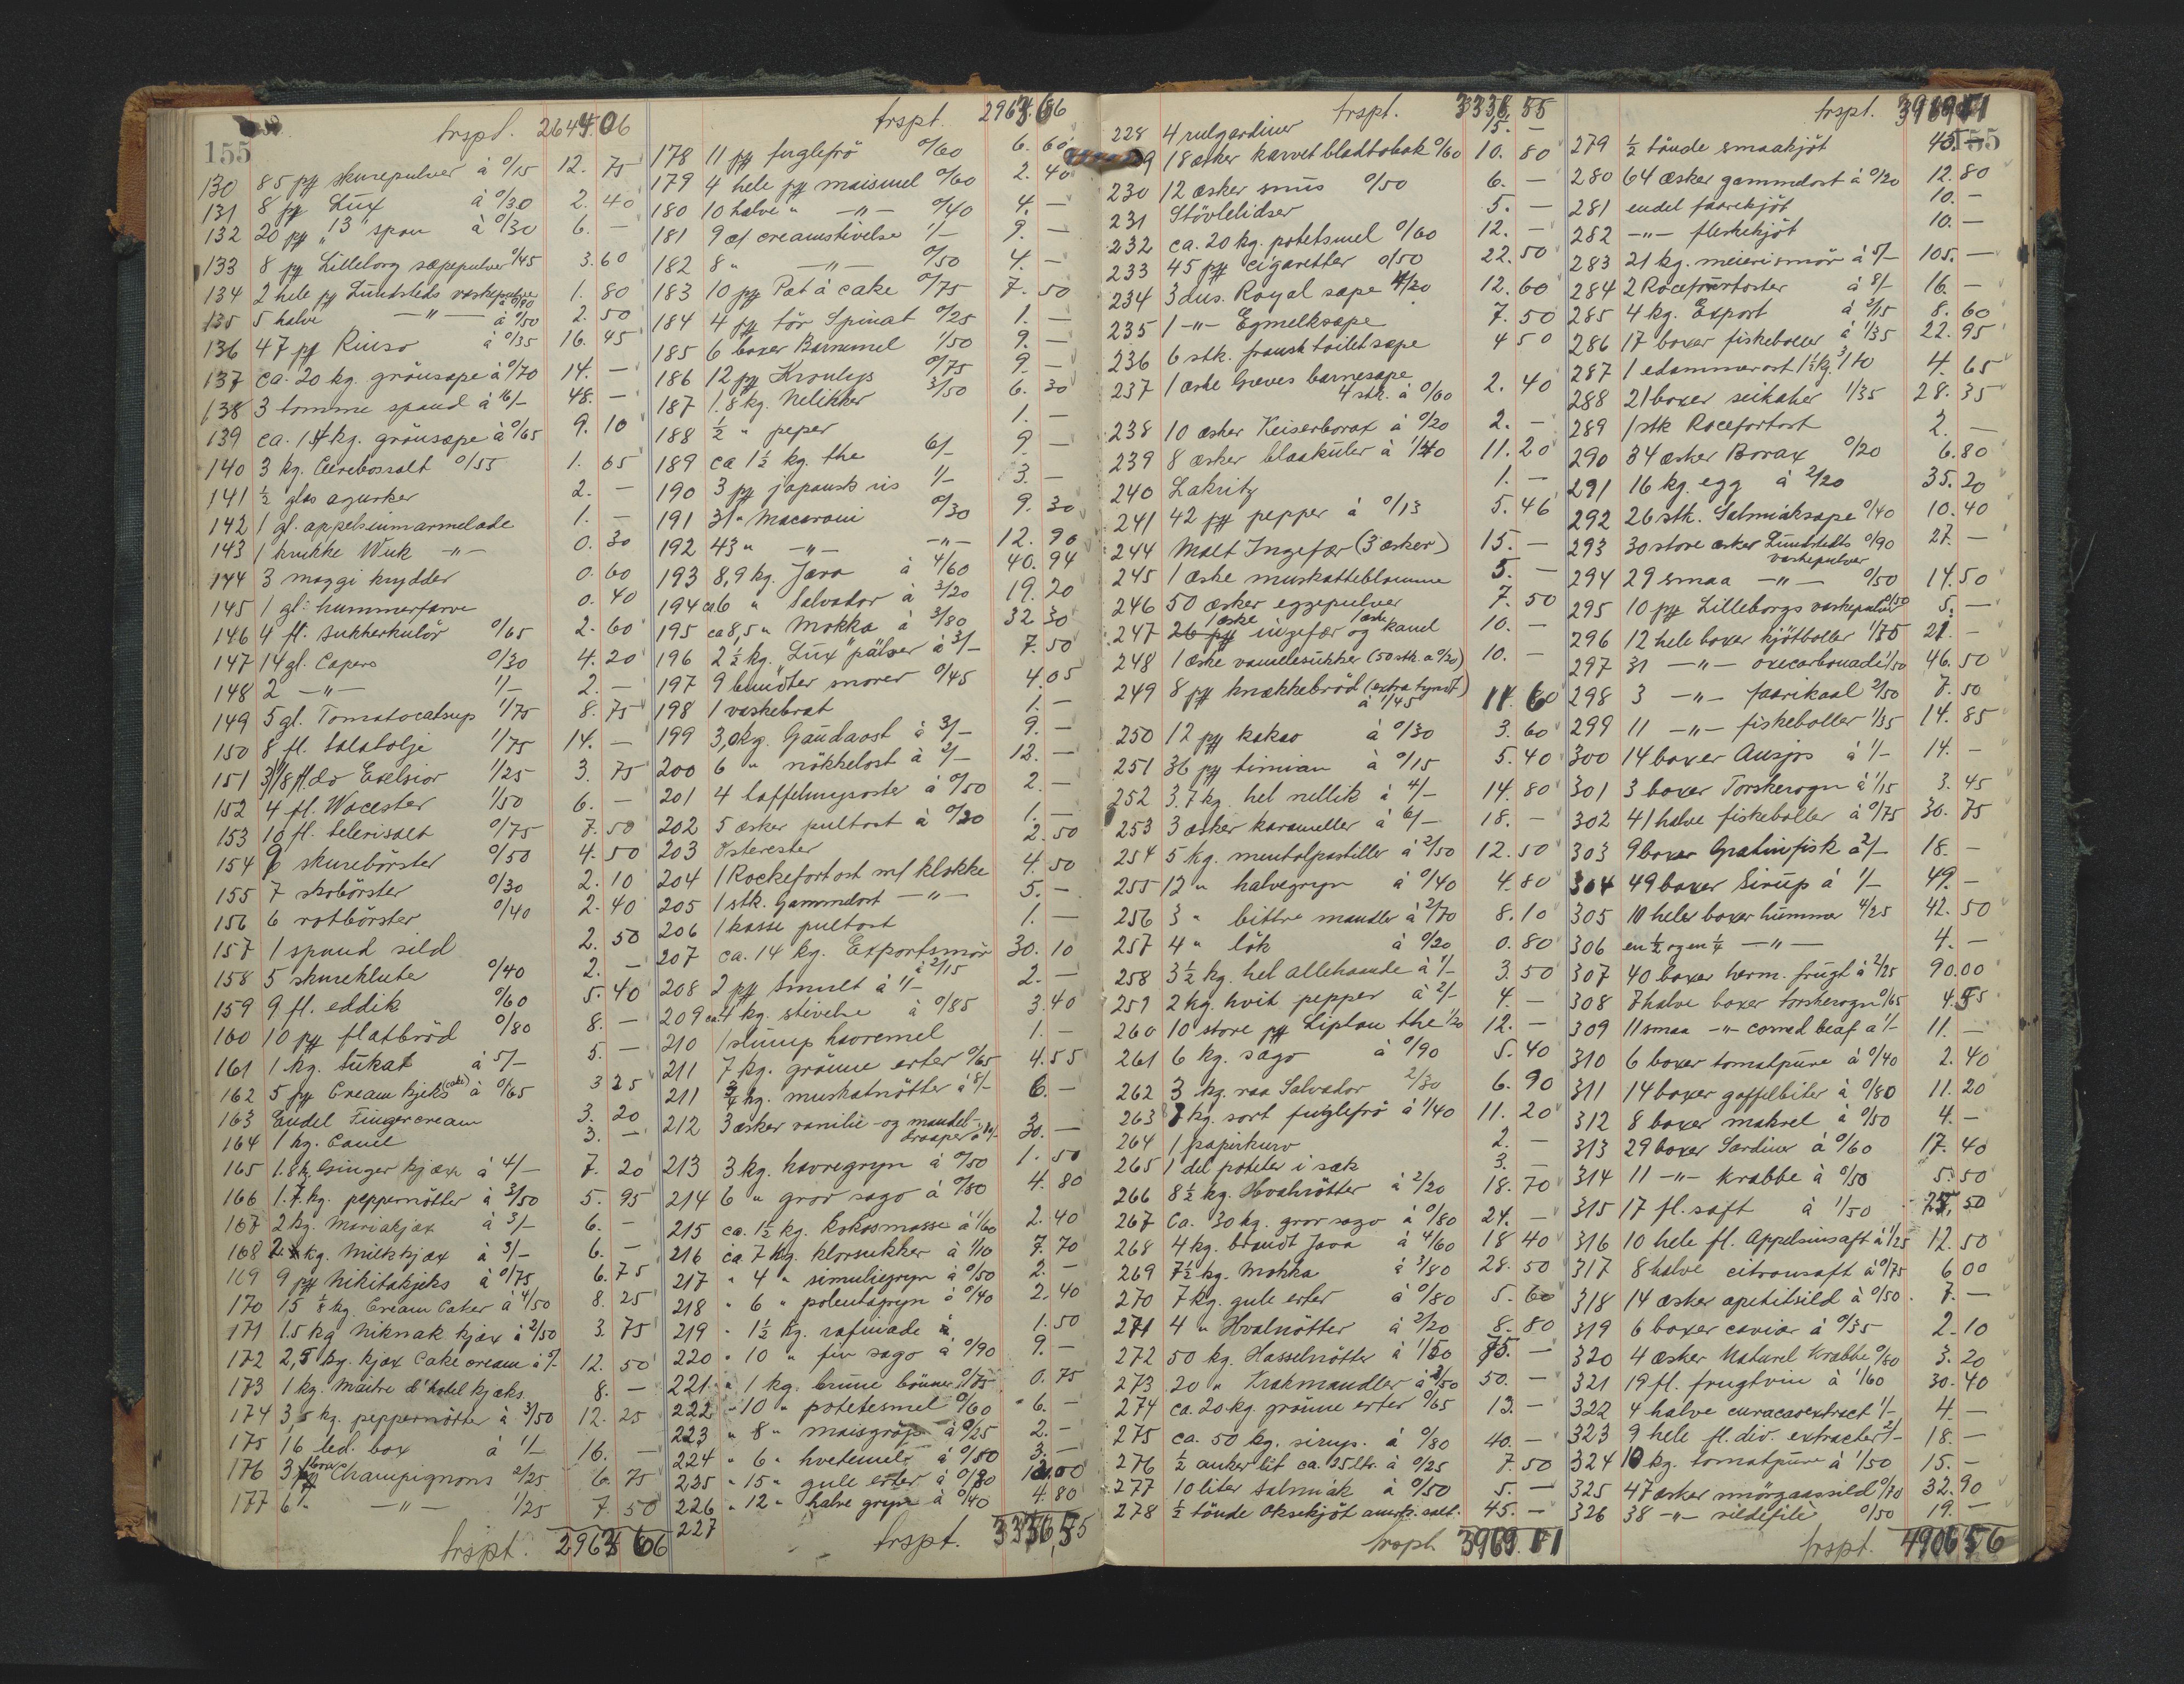 155
trspt. 2644.06
130 85 pk skurepulver à 0/15 12. 75
131 8 pk Lux à 0/30 2. 40
132 20 pk "13" span à 0/30 6. —
133 8 pk Lilleborg sæpepulver 0/45 3.60
134 2 hele pk Lundsteds vaskepulver à 0/90 1. 80
135 5 halve —"— à 0/50 2. 50
136 47 pk Rinso à 0/35 16. 45
137 ca. 20 kg. grönsæpe à 0/70 14. —
138 3 tomme spand à 16/- 48. —
139 ca. 14 kg. grönsæpe à 0/65 9. 10
140 3 kg. Cerebossalt 0/55 1. 65
141 ½ glas agurker 2. —
142 1 gl. appelsinmarmelade 1. —
143 1 krukke Wuk -"- 0. 30
144 3 maggi krydder 0. 60
145 1 gl. hummerfarve 0. 40
146 4 fl. sukkerkulör 0/65 2. 60
147 14 gl. Capers 0/30 4. 20
148 2 —"— 1/- 2. —
149 5 gl. Tomatocatsup 1/75 8. 75
150 8 fl. Salatolje 1/75 14. —
151 3 1/8 fl. do Exelsior 1/25 3. 75
152 4 fl. Wocester 1/50 6. —
153 10 fl. Selerisalt 0/75 7. 50
154 9 skurebörster 0/50 4. 50
155 7 skobörster 0/30 2. 10
156 6 rotbörster 0/40 2. 40
157 1 spand sild 2. 50
158 5 skureklute 0/40 2. —
159 9 fl. eddik 0/60 5. 40
160 10 pk flatbröd 0/80 8. —
161 1 kg. sukat à 5/- 5. —
162 5 pk Cream kjeks (cake) à 0/65 3 25
163 Endel Fingercream 3. 20
164 1 kg. Canel 3. —
165 1.8 kg Ginger kjæx à 4/- 7. 20
166 1.7 kg. peppernötter à 3/50 5. 95
167 2 kg. Mariakjæx à 3/- 6. —
168 2. kg. Milkkjæx à 3/- 6. —
169 9 pk Nikitakjeks à 0/75 6. 75
170 15/8 kg. Cream Caker à 4/50 8. 25
171 1.5 kg Niknak kjæx à 2/50 3. 75
172 2,5 kg. kjæx Cake cream à 5/- 12. 50
173 1 kg. Maitre d'hotel kjæks 8. —
174 3,5 kg. peppernötter à 3/50 12. 25
175 16 led. box à 1/- 16. —
176 3 store Champignons 2/25 6. 75
177 6 —"— 1/25 7. 50
trspt. 2963 66
trspt. 2963.66
178 11 pk fuglefrö 0/60 6. 60
179 4 hele pk maismel 0/60 2. 40
180 10 halve " —"— 0/40 4. —
181 9 æ creamstivelse 1/- 9. —
182 8 " —"— 0/50 4. —
183 10 pk Pat à cake 0/75 7. 50
184 4 pk tör Spinat 0/25 1. —
185 6 boxer Barnemel 1/50 9. —
186 12 pk Kronlys 0/75 9. —
187 1.8 kg. Nelikker 3/50 6. 30
188 ½ " peper 1. —
189 ca 1½ kg. the 6/- 9. —
190 3 pk japansk ris 1/- 3. —
191 31 " Macaroni 0/30 9. 30
192 43 " —"— —"— 12. 90
193 8,9 kg. Java à 4/60 40. 94
194 ca 6 " Salvador à 3/20 19. 20
195 ca 8,5 " Mokka à 3/80 32 30
196 2½ kg. "Lux" pälser à 3/- 7. 50
197 9 bundter snorer 0/45 4.05
198 1 vaskebrat 1. —
199 3,0 kg. Gaudaost à 3/- 9. —
200 6 " nökkelost à 2/- 12. —
201 4 taffelmysoster à 0/50 2. —
202 5 æsker pultost à 0/20 1. —
203 Osterester 2. 50
204 1 Rockefortost m/ klokke 4. 50
205 1 stk. Gammelost —"— 5. —
206 1 kasse pultost 1. —
207 ca. 14 kg. Exportsmör à 2/15 30. 10
208 2 pk Smult à 1/- 2. —
209 ca 4 kg. stivelse à 0/85 3.40
210 1 slump havremel 1. —
211 7 kg. grönne erter 0/65 4. 55
211 ¾ kg. muskatnötter à 8/- 6. —
212 3 æsker vanilie- og mandel-draaper à 10/- 30. —
213 3 kg. havregryn à 0/50 1. 50
214 6 " gror sago à 0/80 4. 80
215 ca. 1½ kg. kokosmasse à 1/60 2. 40
216 ca 7 kg. klorsukker à 1/10 7. 70
217 " 4 " simuliegryn à 0/50 2. —
218 " 6 " polentagryn à 0/40 2. 40
219 " 1½ kg. rafinade à 1. 50
220 " 10 " fin sago à 0/90 9. —
221 " 1 kg. brune bönner 0/75 0. 75
222 " 10 " potetesmel 0/60 6. —
223 " 8 " maisgröp à 0/25 2. —
224 " 6 " hvetemel à 0/50 3. —
225 " 15 " gule erter à 0/80 12.00
226 " 12 " halve gryn à 0/40 4. 80
227
trspt. 3336,55
trspt. 3336. 55
228 4 rulgardiner 15. —
229 18 æsker karvet bladtobak 0/60 10. 80
230 12 æsker snus 0/50 6. —
231 Stövlelidser 5. —
232 ca. 20 kg. potetsmel 0/60 12. —
233 45 pk cigaretter 0/50 22. 50
234 3 dus. Royal sæpe 4/20 12. 60
235 1 -"- Egmelksæpe 7. 50
236 6 stk. fransk toiletsæpe 4 50
237 1 æske Greves barnesæpe 4 stk. à 0/60 2. 40
238 10 æsker Keiserborax à 0/20 2. —
239 8 æsker blaakuler à 1/40 11. 20
240 Lakritz 1. —
241 42 pk pepper à 0/13 5. 46
244 Malt Ingefær (3 æsker) 15. —
245 1 æske muskatteblomme 5. —
246 50 æsker eggepulver 7. 50
247 1 æske ingefær og 1 æske kanel 10. —
248 1 æske vanillesukker (50 stk. à 0/20) 10. —
249 8 pk knækkebröd (extra tyndt) à 1/45 11. 60
250 12 pk kakao à 0/30 3. 60
251 36 pk timian à 0/15 5. 40
252 3.7 kg. hel nellik à 4/- 14. 80
253 3 æsker karameller à 6/- 18. —
254 5 kg. mentolpastiller à 2/50 12. 50
255 12 " halvegryn à 0/40 4. 80
256 3 " bittre mandler à 2/70 8. 10
257 4 " lök à 0/20 0. 80
258 3½ kg. hel allehaande à 1/- 3. 50
259 2 kg. hvit pepper à 2/- 4. —
260 10 store pk Lipton the 1/20 12. —
261 6 kg. sago à 0/90 5. 40
262 3 kg. raa Salvador 2/30 6. 90
263 8 kg. sort fuglefrö à 1/40 11. 20
264 1 papirkurv 2. —
265 1 del poteter i sæk 3. —
266 8½ kg. Hvalnötter à 2/20 18. 70
267 Ca. 30 kg. gror sago à 0/80 24. —
268 4 kg. brændt Java à 4/60 18 40
269 7½ kg. Mokka à 3/80 28. 50
270 7 kg. gule erter à 0/80 5. 60
271 4 " Hvalnötter à 2/20 8. 80
272 50 kg. Hasselnötter à 1/50 75. —
273 20 " Krakmandler à 2/50 50. —
274 ca. 20 kg. grönne erter 0/65 13. —
275 ca. 50 kg. sirup. à 0/80 40. —
276 ½ anker lit ca. 25 ltr. à 0/25 7. 50
277 10 liter Salmiak à 0/50 5. —
278 ½ tönde Oksekjöt amrk. salt. 45. —
trspt. 3969.71
trspt. 3969.71
155
279 ½ tönde smaakjöt 45. —
280 64 æsker gammelost à 0/20 12. 80
281 endel faarekjöt 10. —
282 —"— fleskekjöt 10. —
283 21 kg. meierismör à 5/- 105. —
284 2 Rocefortoster à 8/- 16. —
285 4 kg. Export à 2/15 8. 60
286 17 boxer fiskeboller à 1/35 22. 95
287 1 edammerost 1½ kg. 3/10 4. 65
288 21 boxer seikaker 1/35 28. 35
289 1 stk Rocefortost 2. —
290 34 æsker Borax 0/20 6. 80
291 16 kg. egg à 2/20 35. 20
292 26 stk. Salmiaksæpe 0/40 10. 40
293 30 store æsker Lundstedts vaskepulver 0/90 27. —
294 29 smaa —"— 0/50 14. 50
295 10 pk Lilleborgs vaskepulver 0/50 5. —
296 12 hele boxer kjötboller 1/75 21. —
297 31 —"— oxecarbonade 1/50 46. 50
298 3 —"— faarikaal 2/50 7. 50
299 11 —"— fiskeboller 1/35 14. 85
300 14 boxer Ansjos à 1/- 14. —
301 3 boxer Torskerogn à 1/15 3. 45
302 41 halve fiskeboller à 0/75 30. 75
303 9 boxer Gratinfisk à 2/- 18. —
304 49 boxer Sirup à 1/- 49. —
305 10 heler boxer hummer 4/25 42. 50
306 en ½ og en ¼ —"— 4. —
307 40 boxer herm. frugt à 2/25 90.00
308 7 halve boxer torskerogn 0/65 4.55
309 11 smaa -"- corned beaf à 1/- 11. —
310 6 boxer tomatpure à 0/40 2. 40
311 14 boxer gaffelbiter à 0/80 11. 20
312 8 boxer makrel à 0/50 4. —
313 29 boxer Sardiner à 0/60 17. 40
314 11 -"- krabbe à 0/50 5. 50
315 17 fl. saft à 1/50 25,50
316 10 hele fl. Appelsinsaft à 1/25 12. 50
317 8 halve citronsaft à 0/75 6 00
318 14 æsker apetitsild à 0/50 7. —
319 6 boxer caviar à 0/35 2. 10
320 4 æsker Naturel Krabbe 0/80 3. 20
321 19 fl. frugtvin à 1/60 30. 40
322 4 halve curacaoextract 1/- 4. —
323 9 hele fl. div. extracter 2/- 18. —
324 10 kg. tomatpure à 1/50 15. —
325 47 æsker smörgaassild 0/70 32. 90
326 38 -"- sildefile 0/50 19. —
trspt. 4906 56